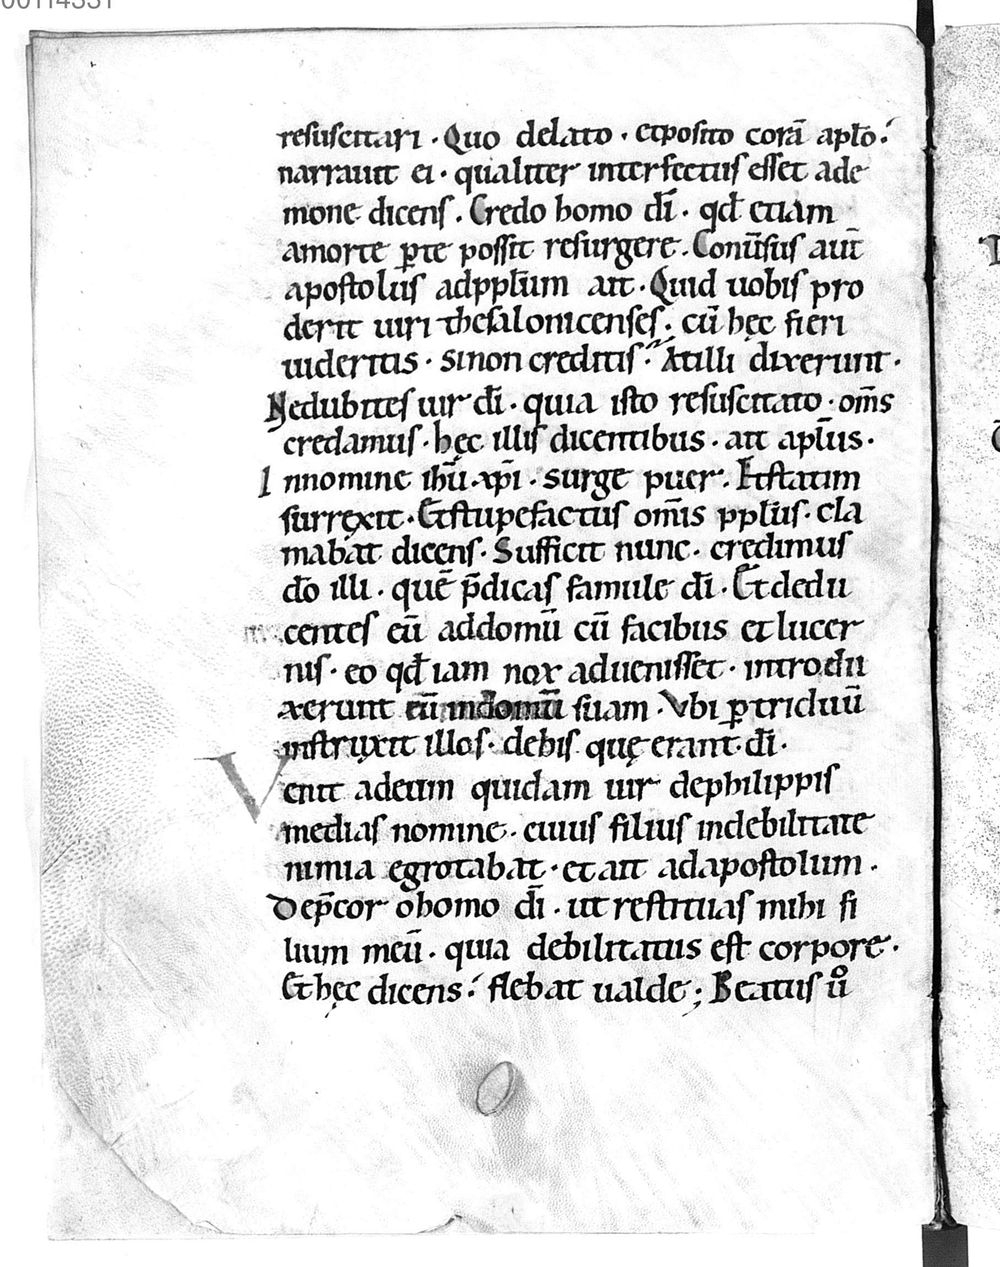 00114331
resuscitari · Quo delato · etposito corā apłō:
narrauit ei · qualiter interfectus esset ade
mone dicens . Credo homo dī · qđ etiam
amorte ꝑte possit resurgere . Conūsus aut̄
apostolus adpplm̄ ait · Quid uobis pro
derit uiri thesalonicenses ; cū hęc fieri
uidertis · sinon creditis · Atilli dixerunt .
Nedubites uir dī · quia isto resuscitato · om̄s
credamus · hęc illis dicentibus · ait apłus ·
Innomine ihū · xpī · surge puer . Etstatim
surrexit · Etstupefactus om̄is ppłus · cla
mabat dicens · Sufficit nunc · credimus
dō illi · quē p̄dicas famule dī · Et dedu
centes eū addomū cū facibus et lucer
nis · eo qđ iam nox aduenisset · introdu
xerunt eū indomū suam · Vbi ꝑ triduū
instruxit illos · dehis quę erant dī ·
Venit adeum quidam uir dephilippis
medias nomine · cuius filius indebilitate
nimia egrotabat · et ait adapostolum .
Dep̄cor ohomo dī · ut restituas mihi fi
lium meū · quia debilitatus est corpore .
Et hęc dicens : flebat ualde ; Beatus ů